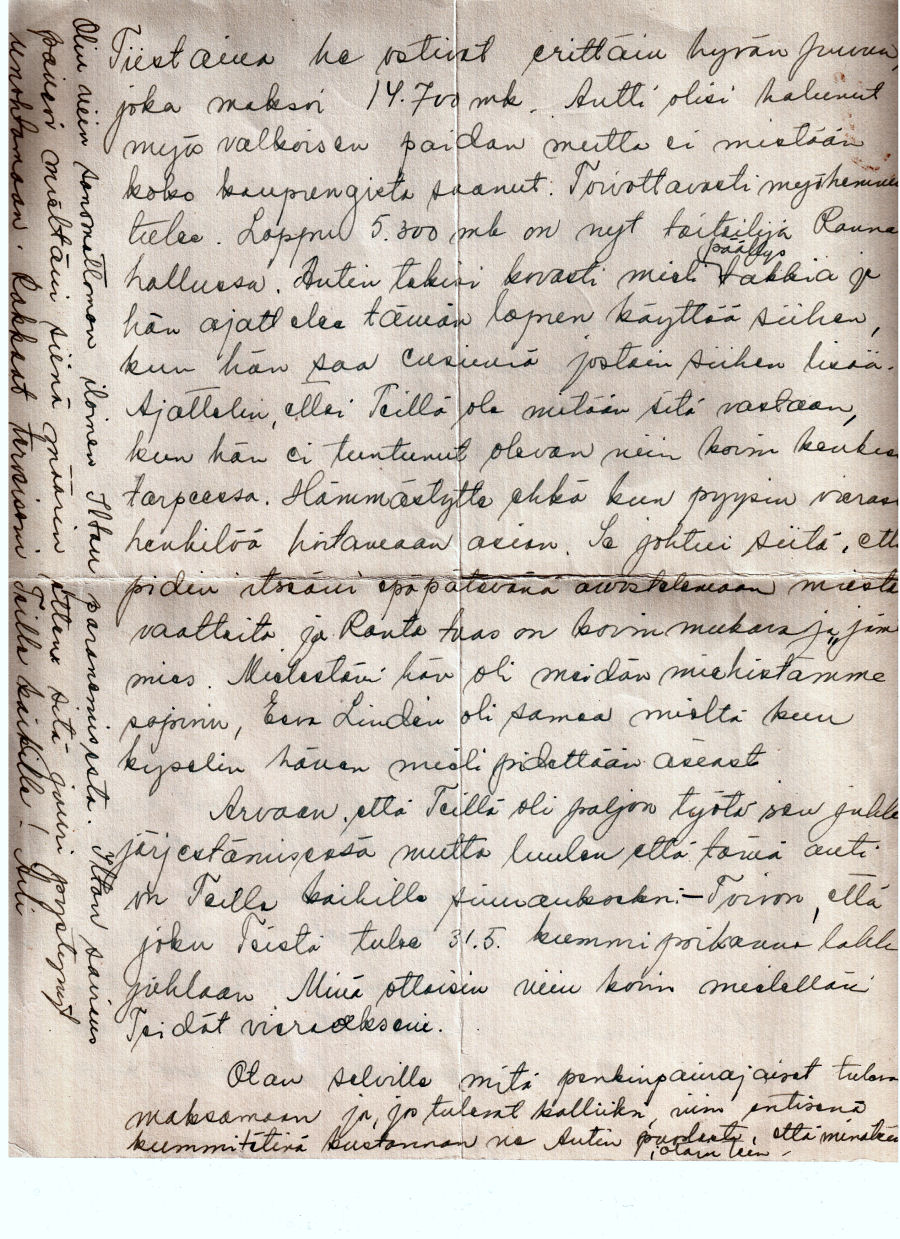 Tiistaina he ostivat erittäin hyvän puvun,
joka maksoi 14.700 mk. Antti olisi halunnut
myös valkoisen paidan mutta ei mistään
koko kaupungista saanut. Toivottavasti myöhemmin
tulee. Loppu 5.300 mk on nyt taiteilija Ranna
hallussa. Antin tekisi kovasti mieli päällys takkia ja
hän ajattelee tämän lopun käyttää siihen,
kun hän saa ensinnä jostain siihen lisää.
Ajattelin, ellei Teillä ole mitään sitä vastaan,
kun hän ei tuntunut olevan niin kovin kenkien
tarpeessa. Hämmästytte ehkä kun pyysin vierasta
henkilöä hoitamaan asian. Se johtui siitä, että
pidin itseäni epäpätevänä arvostelemaan miesten
vaatteita ja Ranta taas on kovin mukava ja „
mies. Mielestäni hän oli meidän miehistämme
sopivin, Eeva Lindén oli samaa mieltä kun
kyselin hänen mielipidettään asiasta
Arvaan, että Teillä oli paljon työtä sen juhlan
järjestämisessä mutta luulen että tämä anti
on Teille kaikille Toivon, että
joku Teistä tulee 31.5. kummipoikanne
juhlaan. Minä ottaisin niin kovin mielelläni
Teidät vieraakseni.
Otan selville mitä penkinpainajaiset tulevat
maksamaan ja, jos tulevat kalliiksi, niin entisenä
kummitätinä kustannan ne Antin puolesta, että
Olin niin sanomattoman iloinen Iltan paranemisesta. Iltan sairaus
painoi mieltäni siinä määrin, etten sitä juuri pystynyt
unohtamaan. Rakkaat terveiseni Teille kaikille! Aili